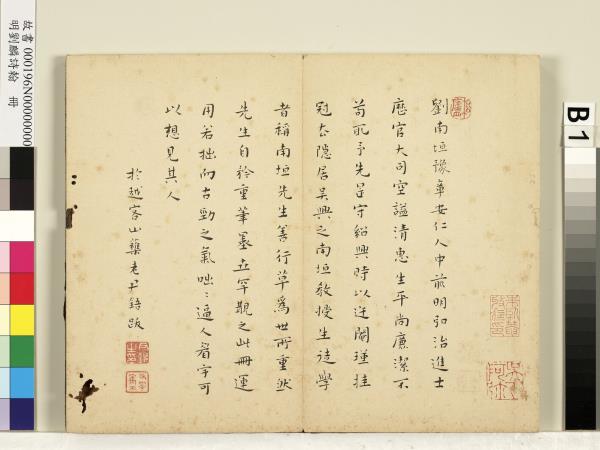 劉南垣豫章安仁人中前明弘治進士
歷官大司空謚清惠生平尚廉潔不
苟取予先是守紹興時以迕閹瑾挂
冠去隱居吳興之南垣教授生徒學
者稱南垣先生善行草為世所重然
先生自矜重筆墨亦罕覯之此冊運
用若拙而古勁之氣咄咄逼人看字可
以想見其人
於越客山藥老
跋
故書 000196N000000000
明劉麟詩翰 冊
B1